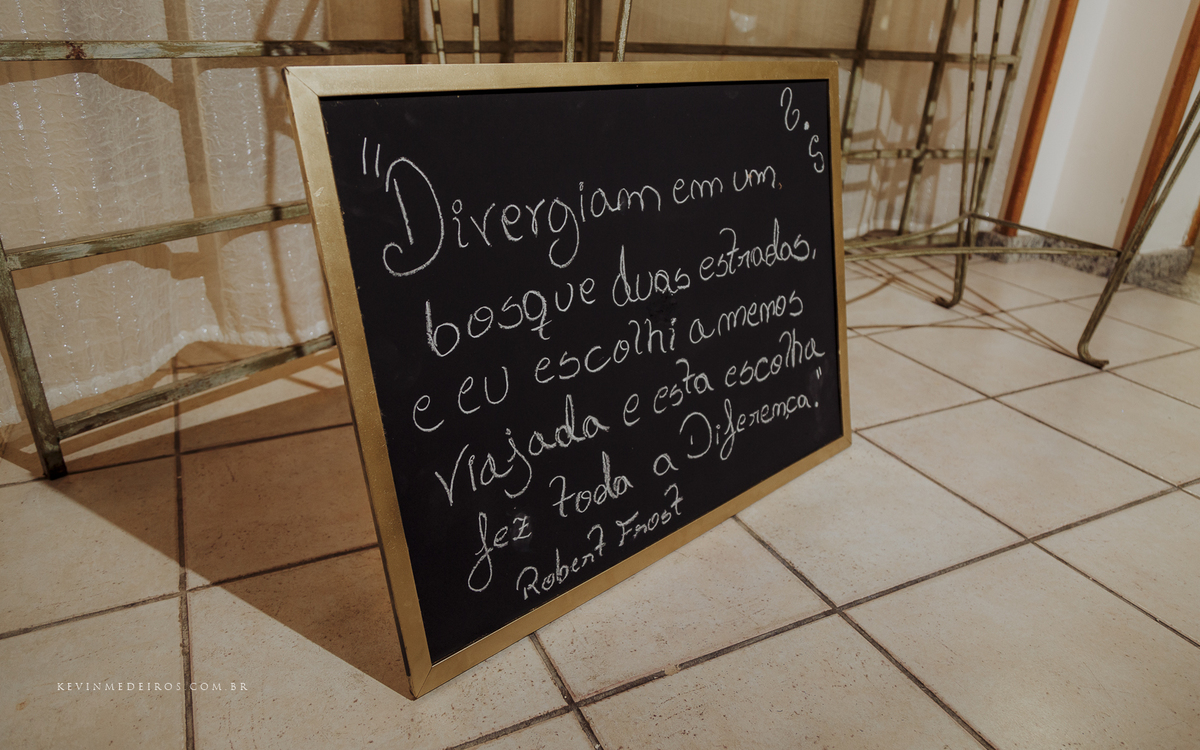 "Divergiam em um
bosque duas estradas,
e eu escolhi a menos
viajada e esta escolha
fez toda a Diferença."
Robert Frost
KEVINMEDEIROS.COM.BR